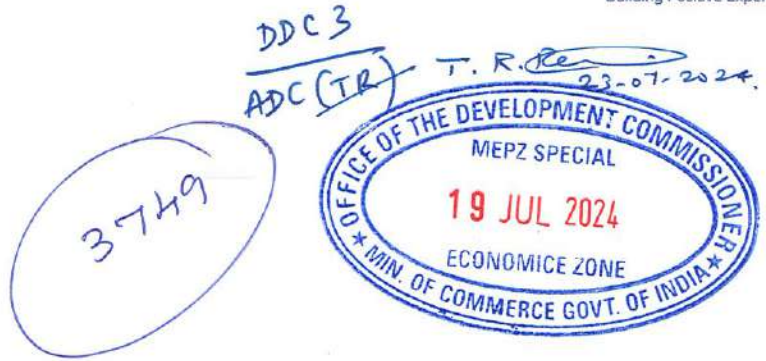 DDC 3
ADC (TR)
T. R.
23-07-2024.
3749
OFFICE OF THE DEVELOPMENT COMMISSIONER
MEPZ SPECIAL
19 JUL 2024
ECONOMICE ZONE
★ MIN. OF COMMERCE GOVT. OF INDIA ★